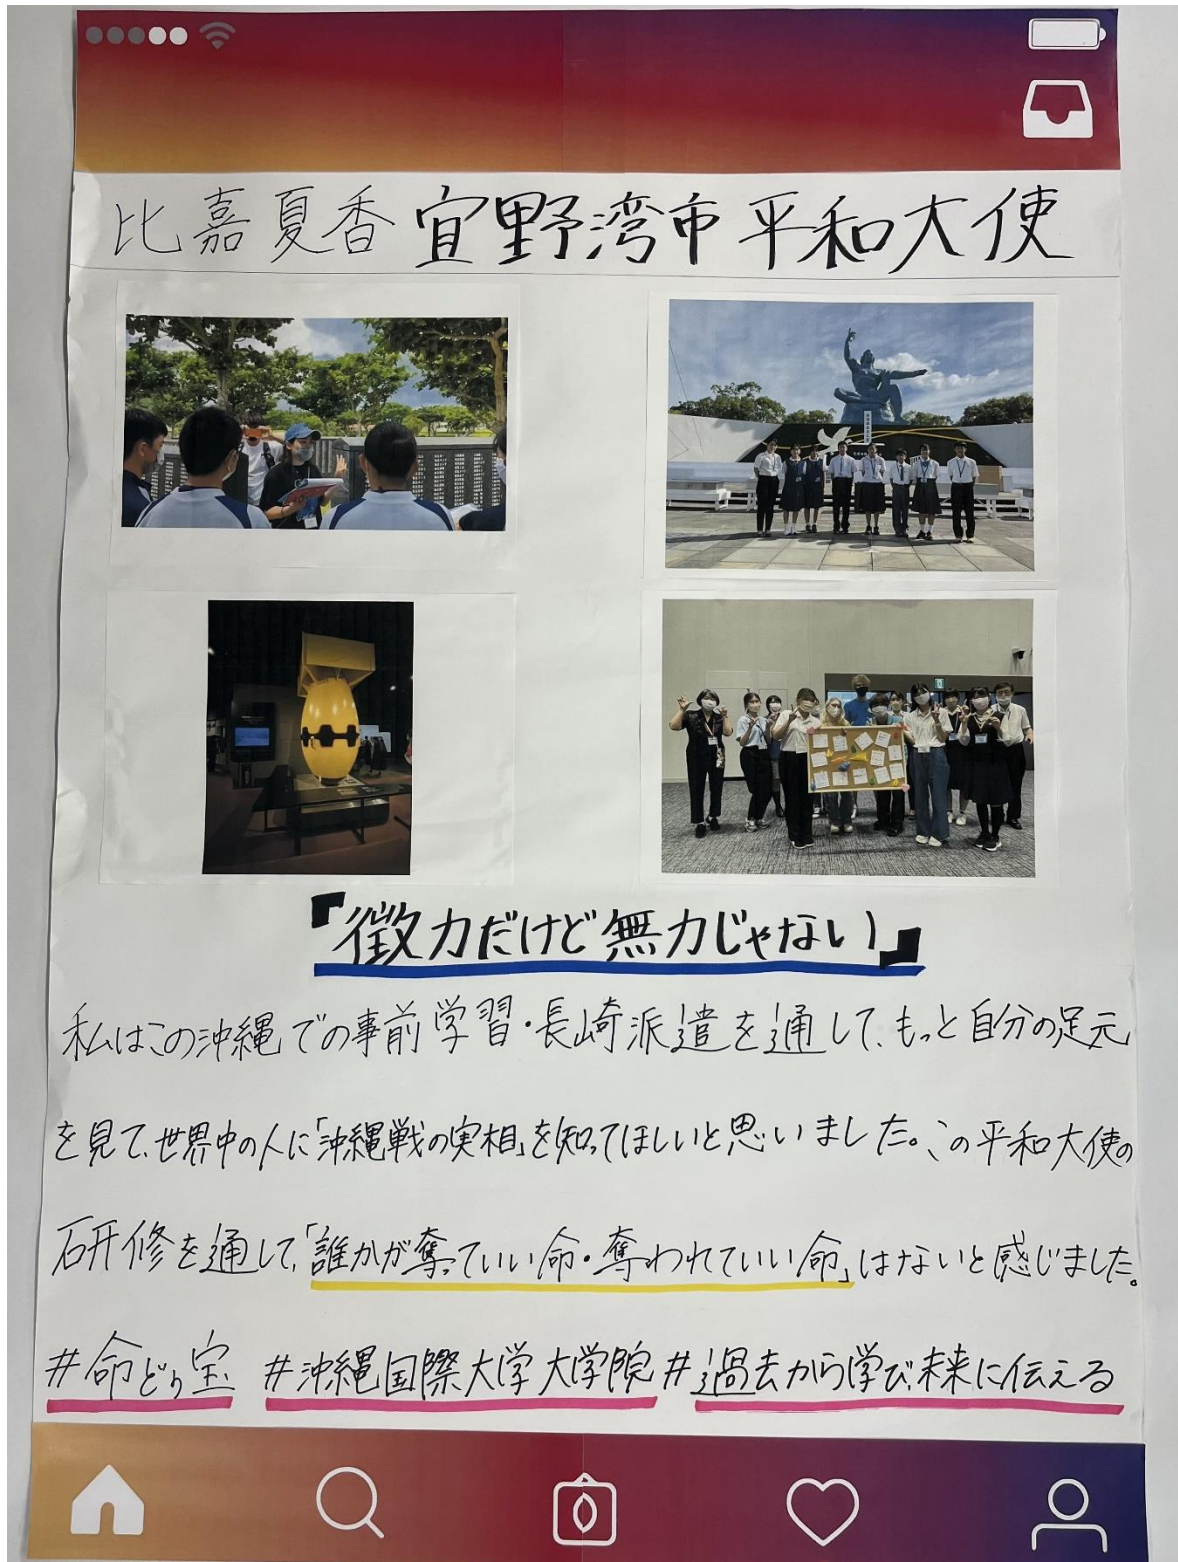 比嘉夏香 宜野湾市平和大使
『微力だけど無力じゃない』
私はこの沖縄での事前学習・長崎派遣を通して、もっと自分の足元
を見て、世界中の人に「沖縄戦の実相」を知ってほしいと思いました。この平和大使の
研修を通して、「誰かが奪っていい命・奪われていい命」はないと感じました。
#命どぅ宝 #沖縄国際大学大学院 #過去から学び、未来に伝える